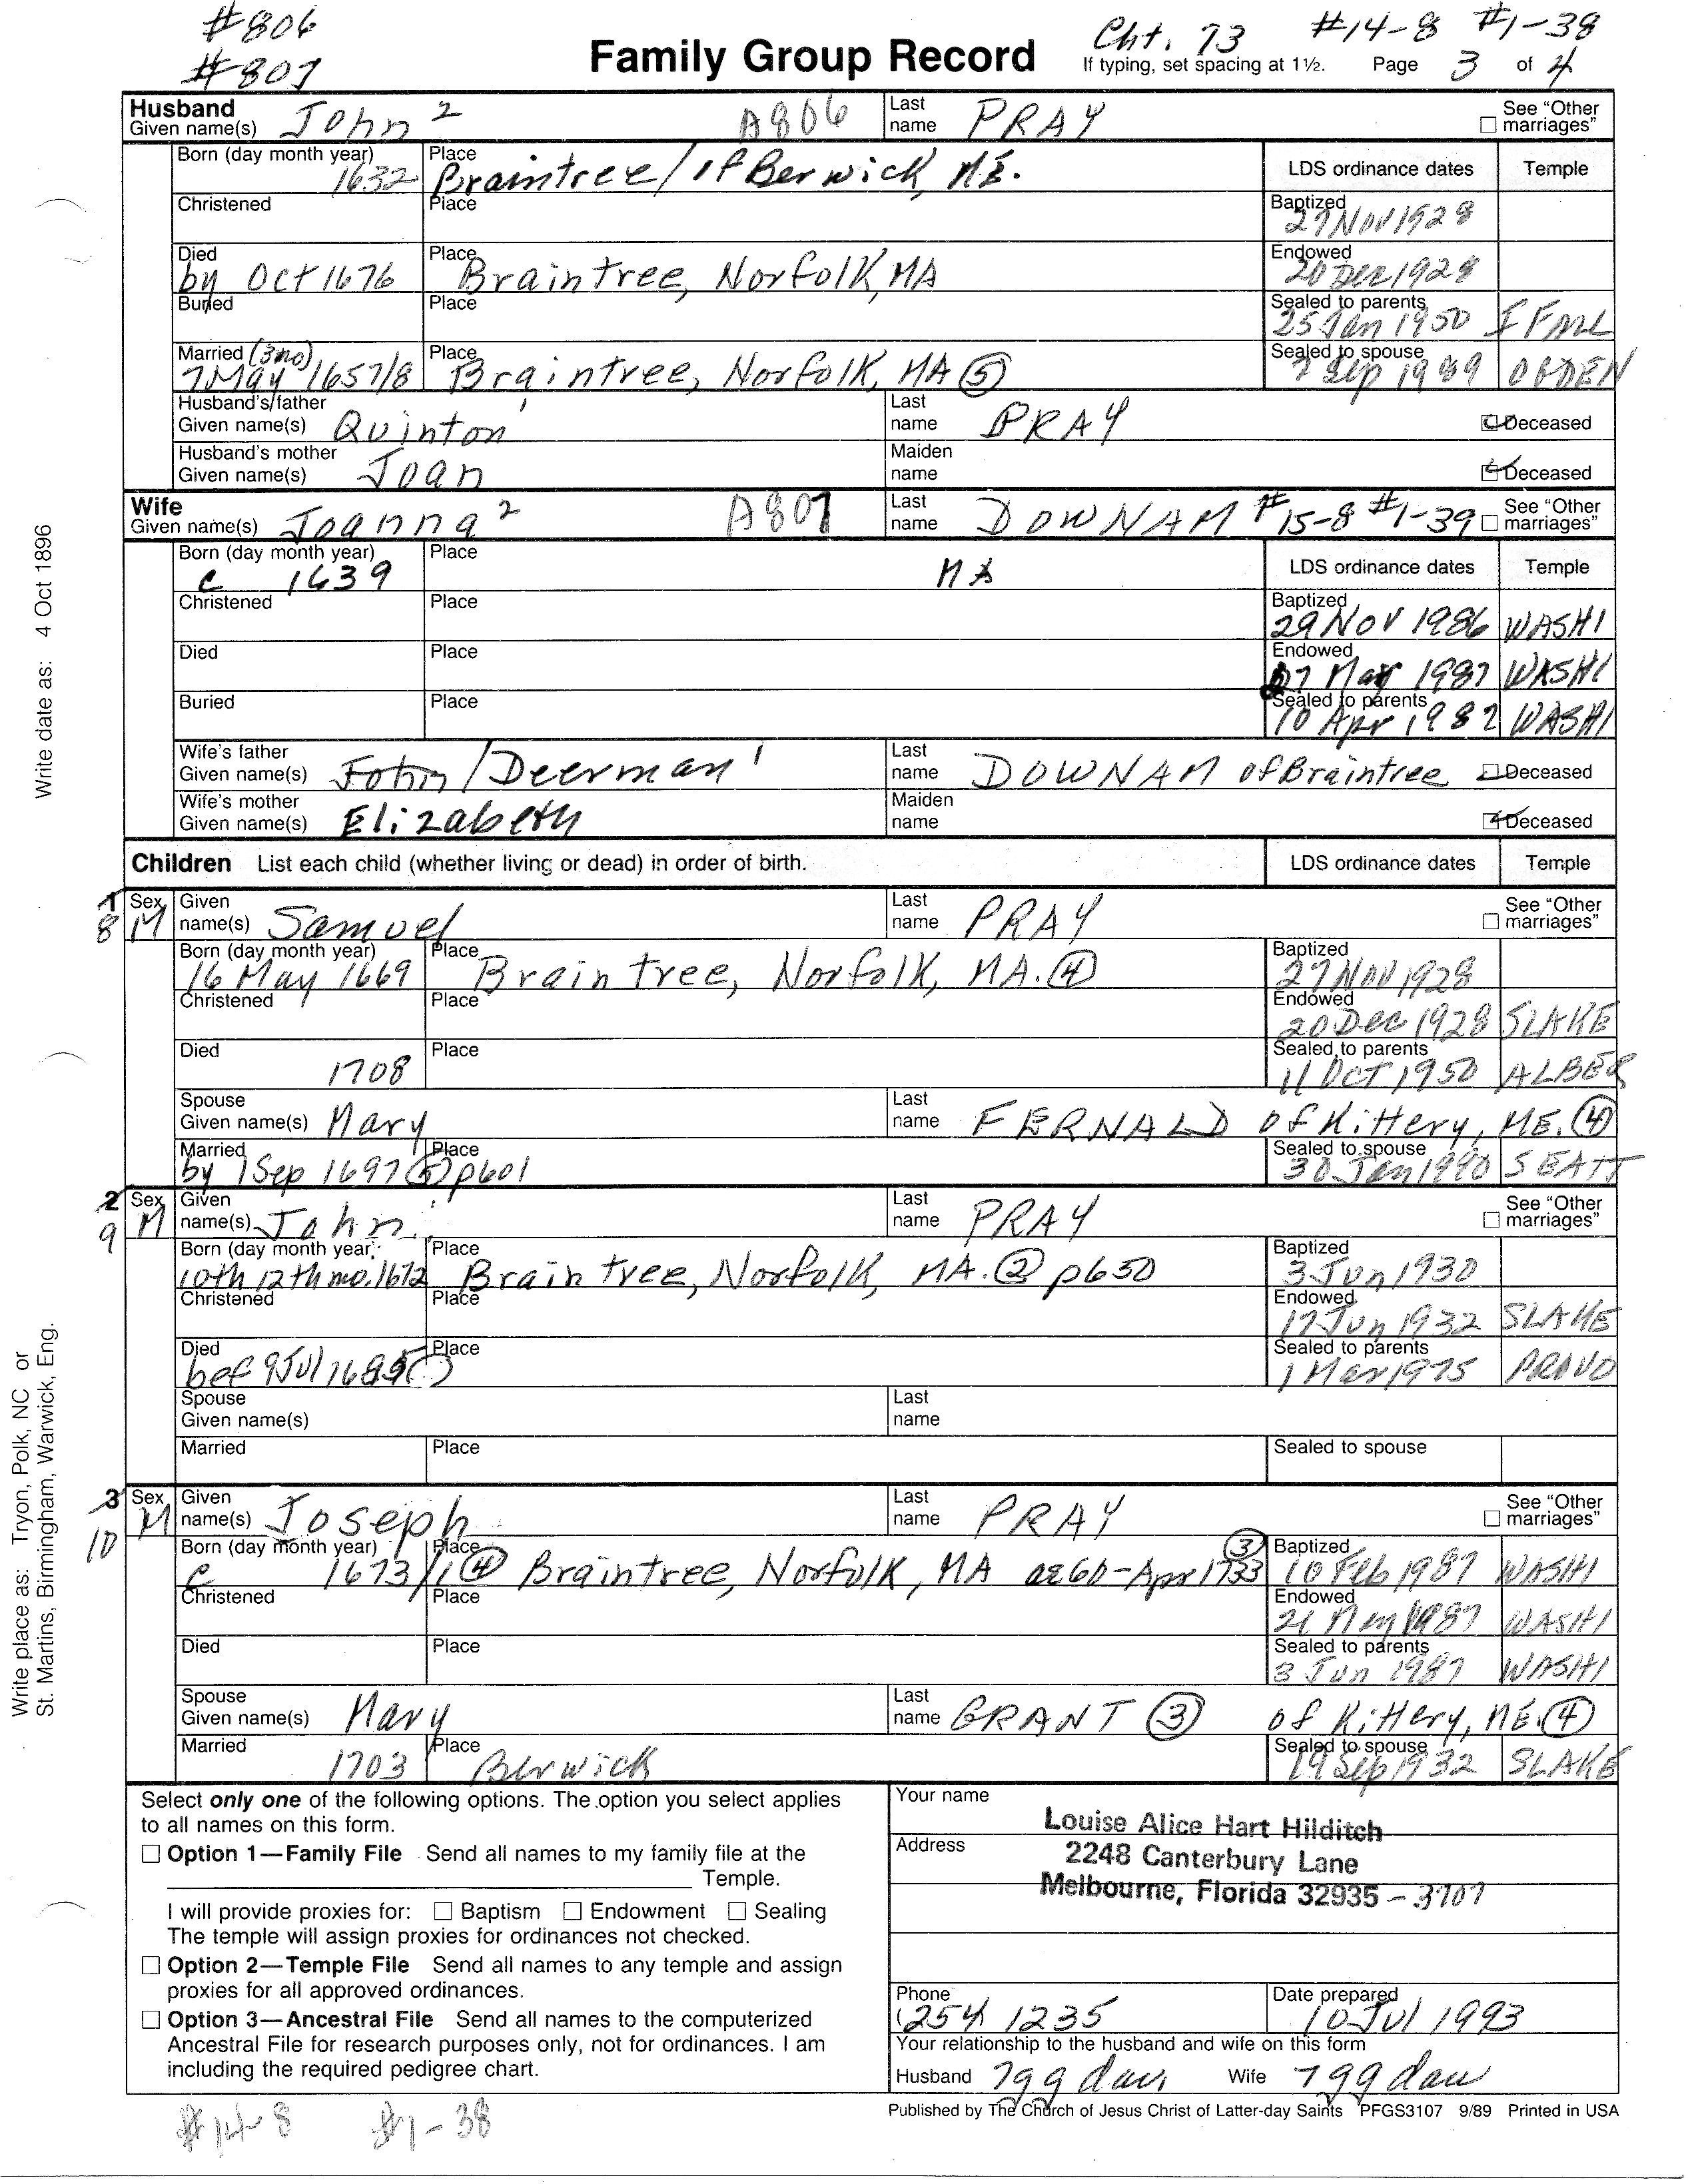 #806
#807
Family Group Record
Cht. 73 #14-8 #1-38
If typing, set spacing at 1½. Page 3 of 4
Husband
Given name(s) John 2 A806 Last name PRAY See "Other marriages"
Born (day month year) 1632 Place Braintree/of Berwick, ME. LDS ordinance dates Temple
Christened Place Baptized 27 Nov 1928
Died by Oct 1676 Place Braintree, Norfolk, MA Endowed 20 Dec 1928
Buried Place Sealed to parents 25 Jan 1950 I FALL
Married (3mo) 7 May 1657/8 Place Braintree, Norfolk, MA (5) Sealed to spouse 7 Sep 1989 OGDEN
Husband's father Given name(s) Quinton 1 Last name PRAY Deceased
Husband's mother Given name(s) Joan Maiden name Deceased
Wife
Given name(s) Joanna 2 A807 Last name DOWNAM #15-8 #1-39 See "Other marriages"
Born (day month year) c 1639 Place MA LDS ordinance dates Temple
Christened Place Baptized 29 Nov 1986 WASHI
Died Place Endowed 1987 WASHI
Buried Place Sealed to parents 10 Apr 1987 WASHI
Wife's father Given name(s) John/Deerman 1 Last name DOWNAM of Braintree Deceased
Wife's mother Given name(s) Elizabeth Maiden name Deceased
Children List each child (whether living or dead) in order of birth. LDS ordinance dates Temple
1 8 Sex M Given name(s) Samuel Last name PRAY See "Other marriages"
Born (day month year) 16 May 1669 Place Braintree, Norfolk, MA. (4) Baptized 27 Nov 1928
Christened Place Endowed 20 Dec 1928 SLAKE
Died 1708 Place Sealed to parents 11 Oct 1950 ALBER
Spouse Given name(s) Mary Last name FERNALD of Kittery, ME. (4)
Married by 1 Sep 1697 (5) p601 Place Sealed to spouse 30 Jan 1990 SEATT
2 9 Sex M Given name(s) John Last name PRAY See "Other marriages"
Born (day month year) 10th 12th mo. 1672 Place Braintree, Norfolk, MA. (2) p650 Baptized 3 Jun 1930
Christened Place Endowed 17 Jun 1932 SLAKE
Died bef 9 Jul Place Sealed to parents 1 Mar 1975 PROVO
Spouse Given name(s) Last name
Married Place Sealed to spouse
3 10 Sex M Given name(s) Joseph Last name PRAY See "Other marriages"
Born (day month year) c 1673/ (4) Place Braintree, Norfolk, MA ae 60-Apr 1733 (3) Baptized 10 Feb 1987 WASHI
Christened Place Endowed 21 1987 WASHI
Died Place Sealed to parents 3 Jun 1987 WASHI
Spouse Given name(s) Mary Last name GRANT (3) of Kittery, ME. (4)
Married 1703 Place Berwick Sealed to spouse 19 Sep 1932 SLAKE
Select only one of the following options. The option you select applies
to all names on this form.
Option 1—Family File Send all names to my family file at the
Temple.
I will provide proxies for: Baptism Endowment Sealing
The temple will assign proxies for ordinances not checked.
Option 2—Temple File Send all names to any temple and assign
proxies for all approved ordinances.
Option 3—Ancestral File Send all names to the computerized
Ancestral File for research purposes only, not for ordinances. I am
including the required pedigree chart.
Your name Louise Alice Hart Hilditch
Address 2248 Canterbury Lane
Melbourne, Florida 32935 - 3707
Phone (254 1235 Date prepared 10 Jul 1993
Your relationship to the husband and wife on this form
Husband 7gg dau Wife 7gg dau
Published by The Church of Jesus Christ of Latter-day Saints PFGS3107 9/89 Printed in USA
#14-8 #1-38
Write date as: 4 Oct 1896
Write place as: Tryon, Polk, NC or
St. Martins, Birmingham, Warwick, Eng.